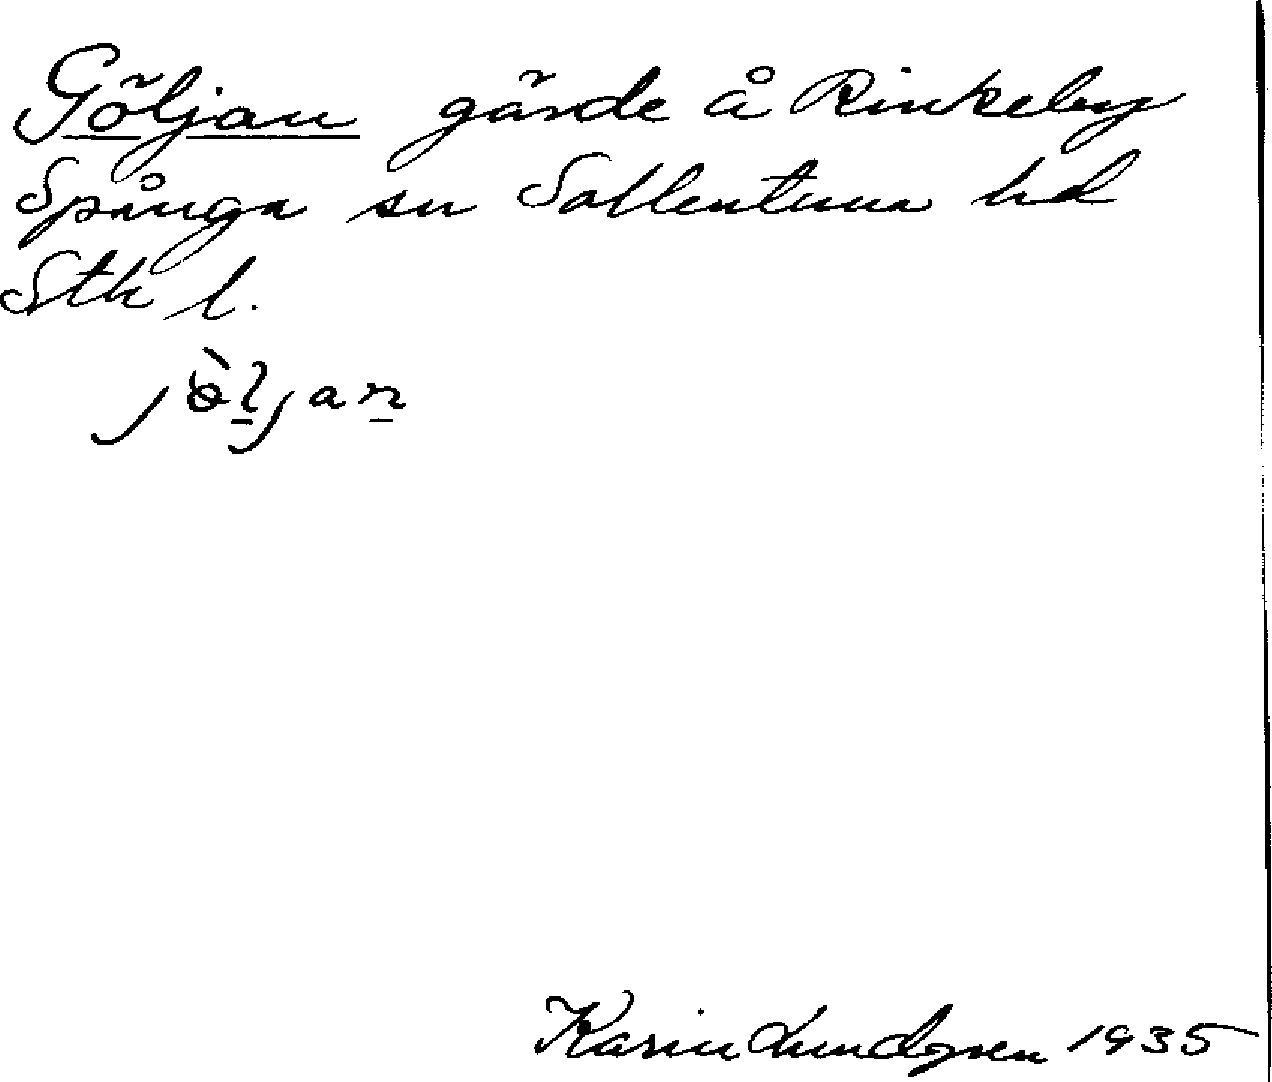 Göljan gärde å Rinkeby
Spånga sn Sollentuna hd
Sth l.
jö̀ljan
Karin Lundgren 1935